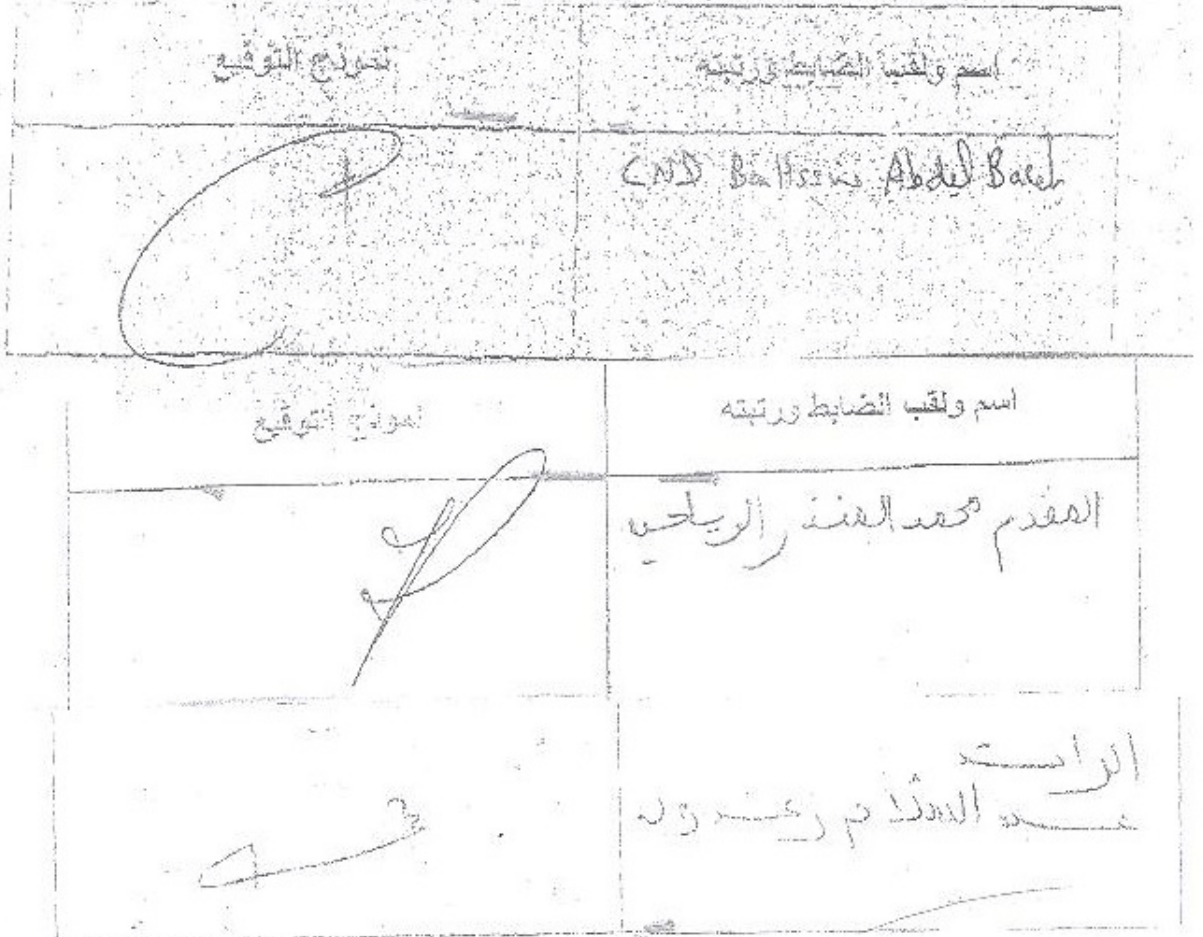 اسم ولقب الضابط ورتبته
نموذج التوقيع
CND Abdel Baset
اسم ولقب الضابط ورتبته
نموذج التوقيع
المقدم محمد المنذر الرياحي
الرائد
عبد السلام